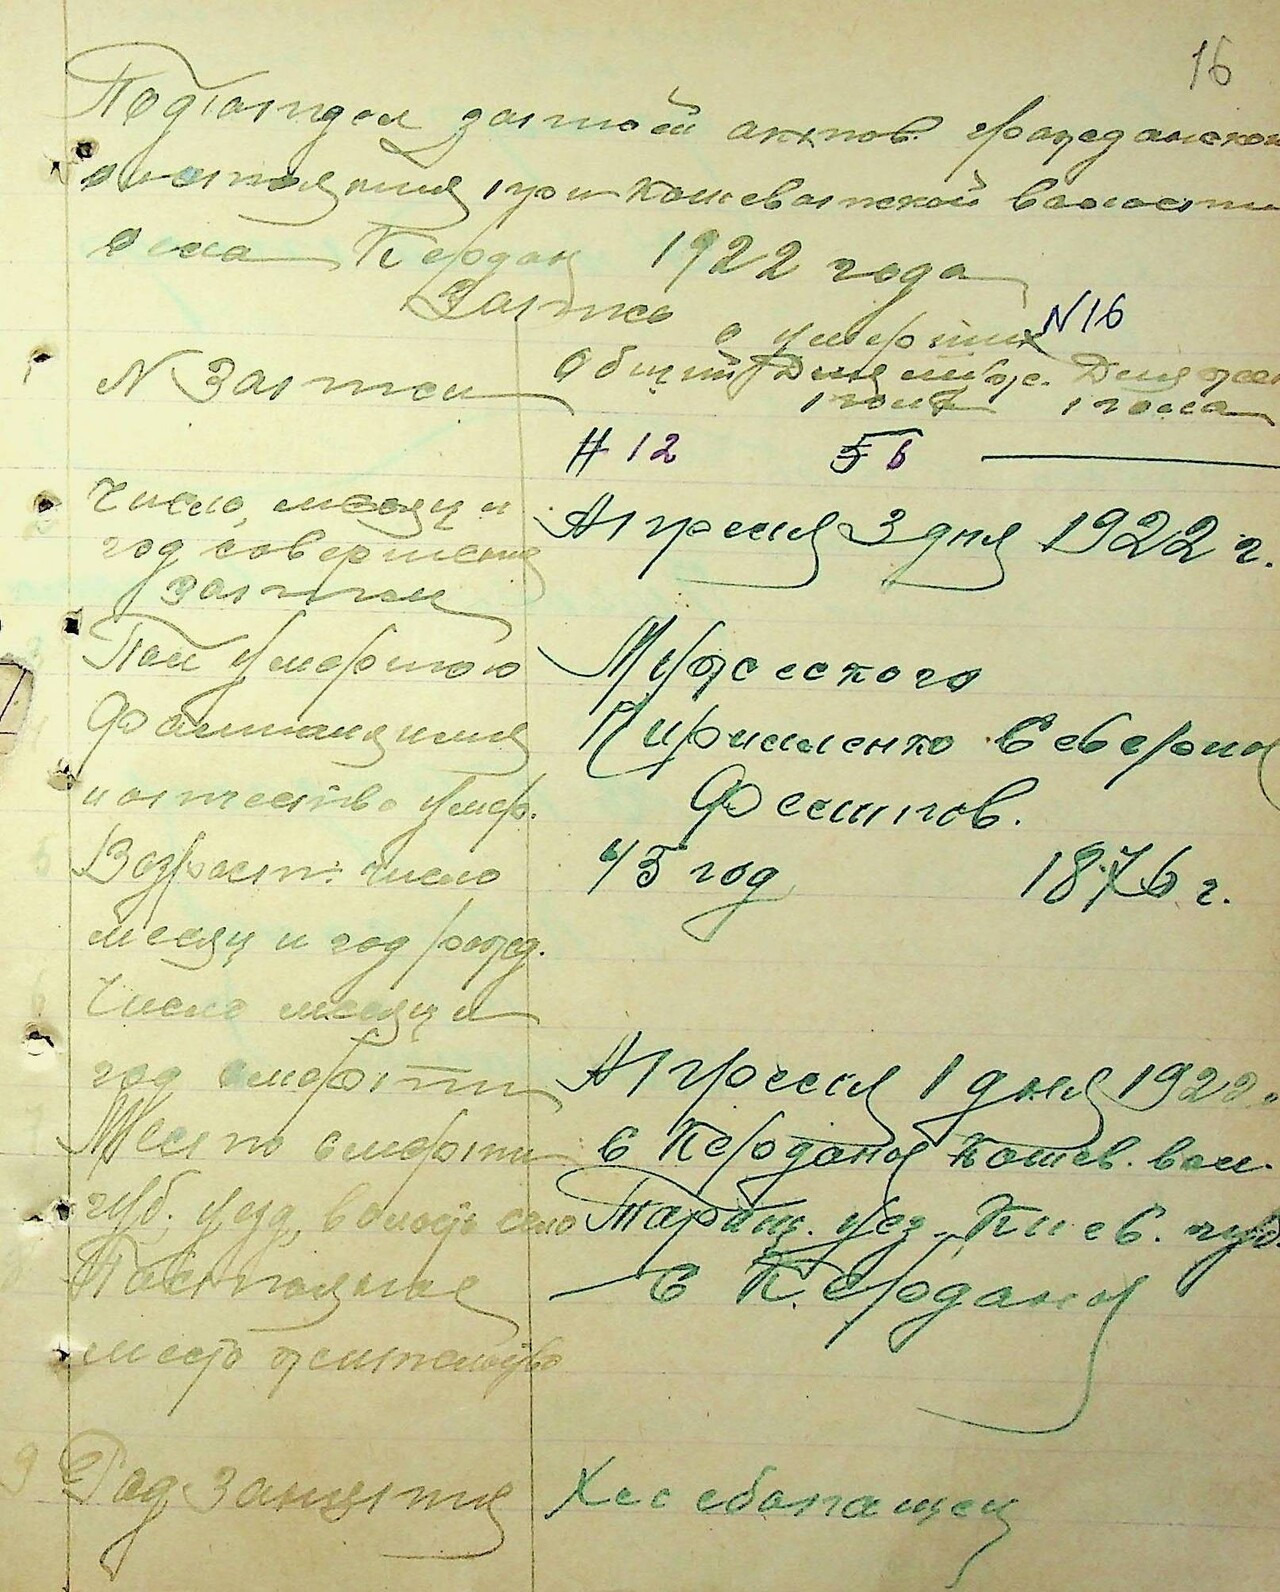 16
Подотдел записей актов гражданского
состояния при Кошеватской волости
села Кердан 1922 года
Запись
о умерших N16
N Записи Общий Для муж. Для жен
пола пола
# 12 6
Число, месяц и Апреля 3 дня 1922 г.
год совершения
записи
Пол умершого Мужеского
Фамилия имя Кириленко Северин
и отчество умер. Филипов.
Возраст: число 45 год 1876 г.
месяц и год рожд.
Число месяц и
год смерти Апреля 1 дня 1922.
Место смерти С Кердани Кошев. вол.
губ. уезд, волость село Таращ. уез. Киев. губ.
Постоянное С Кердани
место жительство
9 Род занятия Хлебопашец